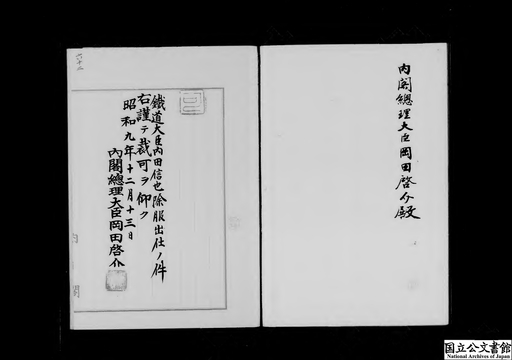 内閣總理大臣岡田啓介殿
六十二
鐵道大臣内田信也除服出仕ノ件
右謹テ裁可ヲ仰ク
昭和九年十二月十三日
内閣總理大臣岡田啓介
内閣
国立公文書館
National Archives of Japan